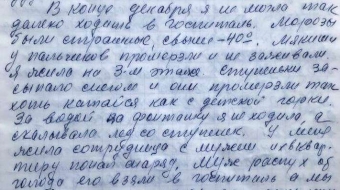 В конце декабря я не могла так
далеко ходить в госпиталь. Морозы
были страшные, свыше -40°. Мякиши
у пальчиков промерзли и не заживали
я жила на 3-м этаже ступеньки за-
сыпало снегом и они промерзли так
хоть катайся как с детской горки.
За водой на фонтанку я не ходила, а
скалывала лед со ступенек. У меня
жила сотрудница с мужем и в квар-
тиру попал снаряд. Муж распух от
голода его взяли в госпиталь а мы